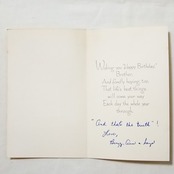 Wishing you Happy Birthday
Brother
And kindly hoping, too
That life's best things
will come your way
Each day the whole year
through.
"And that's the truth"!
Love,